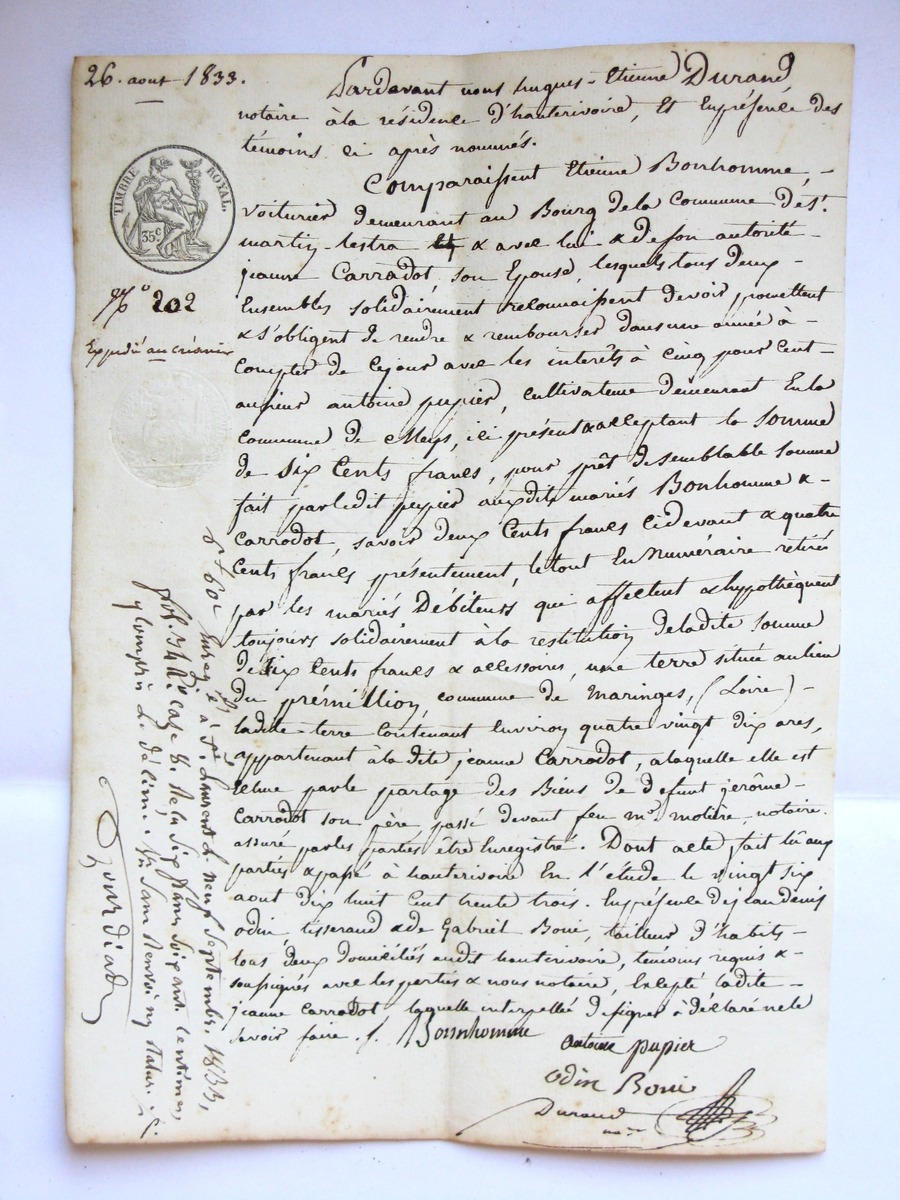 26. aout 1833.
TIMBRE ROYAL.
35 c
N.º 202
Expedié au créancier
Pardavant nous hugues-Etienne Durand
notaire à la résidence d'hauterivoire, Et En présence des
témoins ci après nommés.
Comparaissent Etienne Bonhomme,
voiturier demeurant au Bourg de la Commune de St.
martin-lestra & avec lui & de son autorité
jeanne Carradot, son Epouse, lesquels tous deux
Ensembles solidairement reconnaissent devoir promettent
& s'obligent de rendre & rembourser dans une année à
Compter de Cejour avec les interêts à Cinq pour Cent
au sieur antoine pupier, cultivateur demeurant En la
Commune de Meys, ici présent & acceptant la Somme
de Six Cents francs, pour prêt de semblable Somme
fait par ledit pupier auxdits mariés Bonhomme &
Carradot, savoir deux Cents francs ci devant & quatre
Cents francs présentement, le tout En Numéraire retiré
par les mariés Débiteurs qui affectent & hypothèquent
toujours solidairement à la restitution de ladite Somme
de Six Cents francs & accessoires, une terre située au lieu
du prémillion, commune de Maringes, (Loire)
ladite terre Contenant Environ quatre vingt dix ares,
appartenant à la dite jeanne Carradot, à laquelle elle est
Echue par le partage des Biens de defunt jerôme
Carradot son père passé devant feu me. molière, notaire
assuré par les parties être Enregistré. Dont acte fait lû aux
parties & passé à hauterivoire En l'étude le vingt six
aout dix huit Cent trente trois. En présence de jean denis
odin, tisserand & de Gabriel Boni, tailleur d'habits
tous deux domiciliés audit hauterivoire, témoins requis &
soussignés avec les parties & nous notaire, Excepté ladite
jeanne Carradot laquelle interpellée de signer à déclaré ne le
savoir faire ./.
Bonnhomme
antoine pupier
odin Boni
Durand
Enregistré à St. Laurent le neuf Septembre 1833,
fol. 34 Vo. case 8. Reçu Six francs Soixante Centimes,
y Compris le décime. Sans Renvoi ny Rature